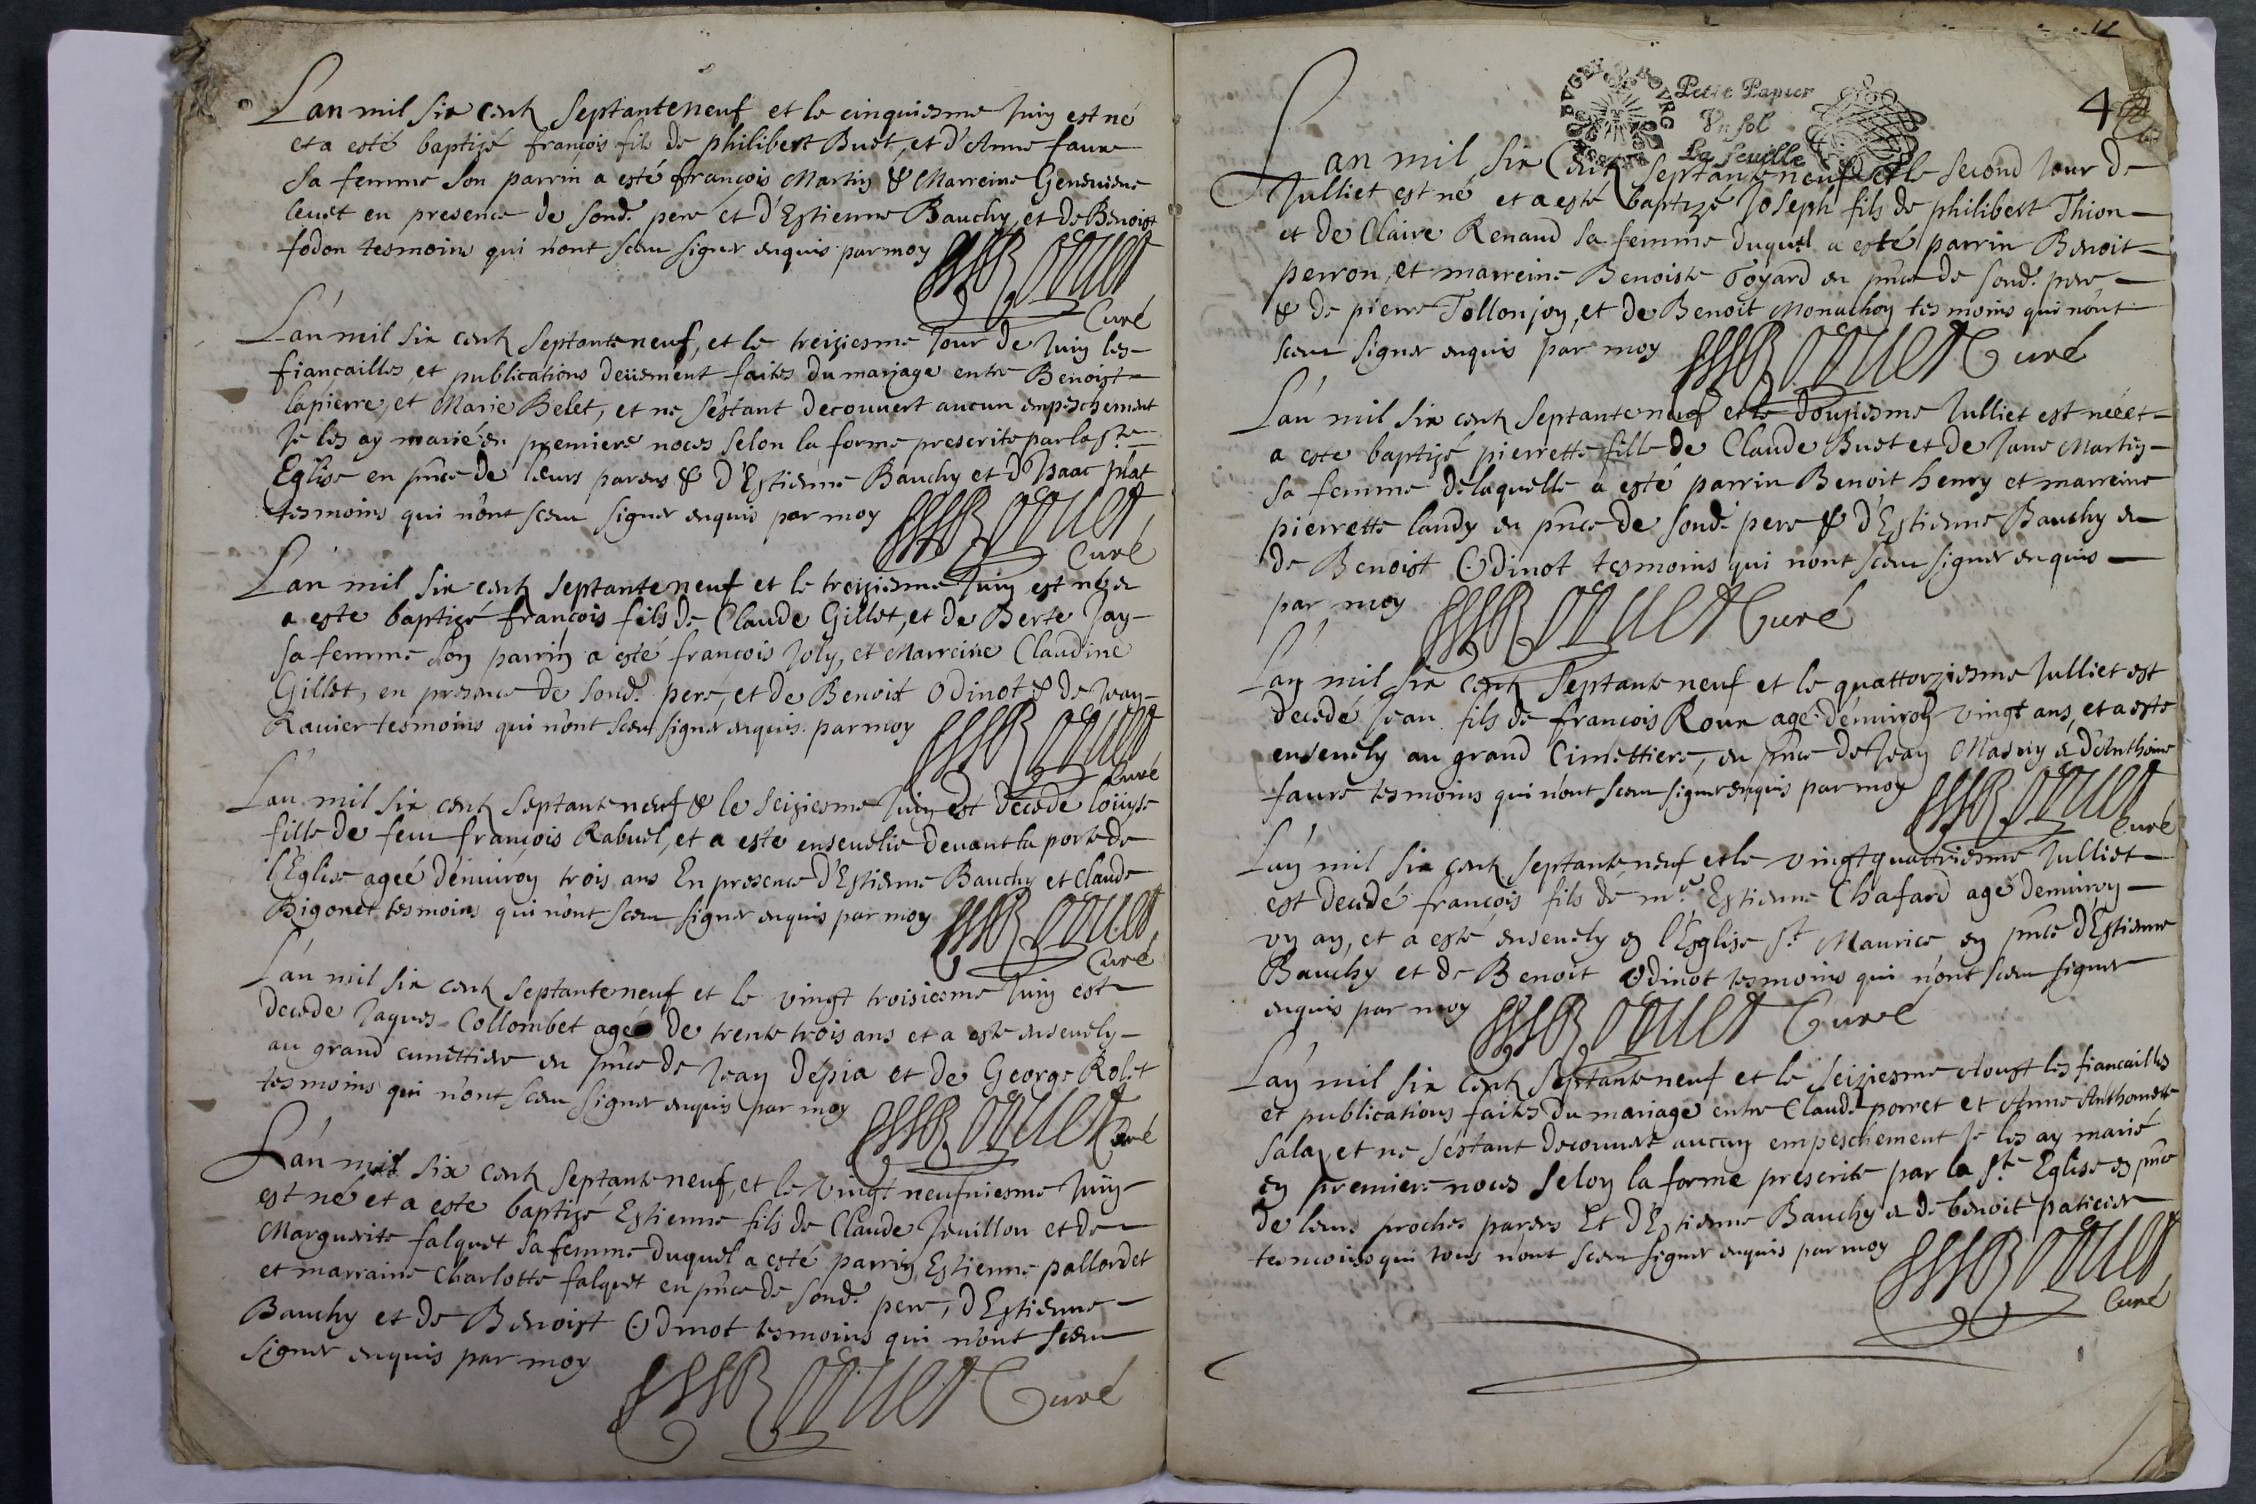 L'an mil six cent septanteneuf et le cinquiesme Juin est né
et a esté baptizé françois fils de philibert Buet, et d'Anne faure
sa femme son parrin a esté françois Martin & Marreine Geneviene
en presence de sond. pere et d'Estienne Bauchy, et de Benoist
fodon tesmoins qui n'ont sceu signer enquis par moy
Curé
L'an mil six cent septanteneuf, et le treiziesme Jour de Juin les
fiancailles, et publications deüement faites du mariage entre Benoist
lapierre, et Marie Belet, et ne s'estant decouvert aucun empeschement
Je les ay marié en premiere noces selon la forme prescrite par la Ste
Eglise en pnce de leurs parens & d'Estienne Bauchy et d'Isaac
tesmoins qui n'ont sceu signer enquis par moy
Curé
L'an mil six cent septanteneuf et le treiziesme Juin est né &
a este baptizé françois fils de Claude Gillet, et de Berte Jay
sa femme son parrin a esté françois Joly, et Marreine Claudine
Gillet, en presence de sond. pere, et de Benoist Odinot & de Jean
Ravier tesmoins qui n'ont sceu signer enquis par moy
Curé
L'an mil six cent septanteneuf & le seiziesme Juin est decede loüyse
fille de feu françois Rabuel, et a este ensevelie devant la porte de
l'Eglise ageé d'enuiron trois ans En presence d'Estienne Bauchy et Claude
Bigonet tesmoins qui n'ont sceu signer enquis par moy
Curé
L'an mil six cent septanteneuf et le vingt troisiesme Juin est
decede Jaques Collombet agé de trente trois ans et a este ensevely
au grand cimettiere en pnce de Jean Depia et de George Rolet
tesmoins qui n'ont sceu signer enquis par moy
Curé
L'an mil six cent septanteneuf, et le vingt neufuiesme Juin
est né et a este baptizé Estienne fils de Claude Jouillon et de
Marguerite falquet sa femme duquel a esté parrin Estienne pallordet
et marraine Charlotte falquet en pnce de sond. pere, d'Estienne
Bauchy et de Benoist Odinot tesmoins qui n'ont sceu
signer enquis par moy
Curé
Petit Papier
Un sol
La feuille
4
L'an mil six Cent septanteneuf et le second Jour de
Julliet est né et a esté baptizé Joseph fils de philibert Thion
et de Claire Renaud sa femme duquel a esté parrin Benoit
perron, et marreine Benoiste Foyard en pnce de sond. pere,
& de pierre Tollonjon, et de Benoit Monachon tesmoins qui n'ont
sceu signer enquis par moy Curé
L'an mil six cent septanteneuf et le douziesme Julliet est néé et
a este baptizé pierrette fille de Claude Buet et de Jane Martin
sa femme delaquelle a esté parrin Benoit henry et marreine
pierrette landy en pnce de sond. pere & d'Estienne Bauchy &
de Benoist Odinot tesmoins qui n'ont sceu signer enquis
par moy Curé
L'an mil six cent septanteneuf et le quattorziesme Julliet est
decedé Jean fils de françois Roux agé d'enuiron vingt ans, et a este
ensevely au grand Cimettiere, en pnce de Jean & d'Anthoine
faure tesmoins qui n'ont sceu signer enquis par moy
Curé
L'an mil six cent septanteneuf et le vingtquattriesme Julliet
est decedé françois fils de mre Estienne Chafard agé d'enuiron
un an, et a esté ensevely en l'Esglise St Maurice en pnce d'Estienne
Bauchy et de Benoit Odinot tesmoins qui n'ont sceu signer
enquis par moy Curé
L'an mil six cent septanteneuf et le seiziesme Aoust les fiancailles
et publications faites du mariage entre Claude porret et Anne Anthomette
Sala, et ne s'estant decouvert aucun empeschement Je les ay marié
en premiere noces selon la forme prescrite par la Ste Eglise en pnce
de leurs proches parens Et d'Estienne Bauchy & de benoit paticier
tesmoins qui tous n'ont sceu signer enquis par moy
Curé